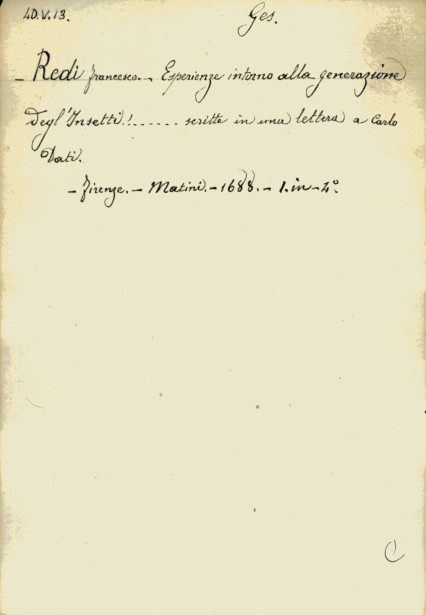 4D.V.13. Ges.
– Redi Francesco. – Esperienze intorno alla generazione
Degl'Insetti! ...... scritte in una lettera a Carlo
Dati.
– Firenze. – Matini. – 1688. – 1. in – 4°.